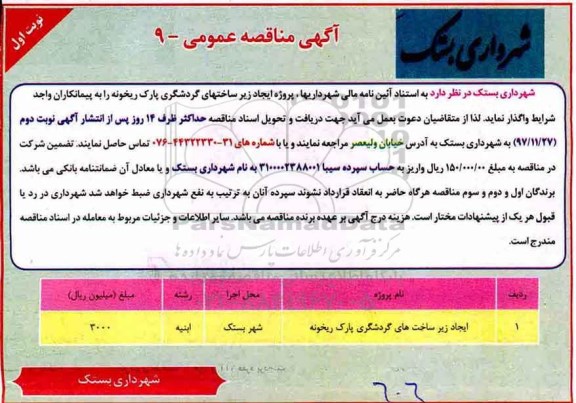 نوبت اول
آگهی مناقصه عمومی - ۹
شهرداری بستک
شهرداری بستک در نظر دارد به استناد آئین نامه مالی شهرداریها، پروژه ایجاد زیر ساختهای گردشگری پارک ریخونه را به پیمانکاران واجد
شرایط واگذار نماید. لذا از متقاضیان دعوت بعمل می آید جهت دریافت و تحویل اسناد مناقصه حداکثر ظرف ۱۴ روز پس از انتشار آگهی نوبت دوم
(۹۷/۱۱/۲۷) به شهرداری بستک به آدرس خیابان ولیعصر مراجعه نمایند و یا با شماره های ۳۱-۴۴۳۲۲۳۳۰-۰۷۶ تماس حاصل نمایند. تضمین شرکت
در مناقصه به مبلغ ۱۵۰/۰۰۰/۰۰۰ ریال واریز به حساب سپرده سیبا ۳۱۰۰۰۰۲۳۸۸۰۰۱ به نام شهرداری بستک و یا معادل آن ضمانتنامه بانکی می باشد.
برندگان اول و دوم و سوم مناقصه هرگاه حاضر به انعقاد قرارداد نشوند سپرده آنان به ترتیب به نفع شهرداری ضبط خواهد شد شهرداری در رد یا
قبول هر یک از پیشنهادات مختار است. هزینه درج آگهی بر عهده برنده مناقصه می باشد. سایر اطلاعات و جزئیات مربوط به معامله در اسناد مناقصه
مندرج است.
ParsNamadData
مرکز فرآوری اطلاعات پارس نماد داده ها
ردیف نام پروژه محل اجرا رشته مبلغ (میلیون ریال)
۱ ایجاد زیر ساخت های گردشگری پارک ریخونه شهر بستک ابنیه ۳۰۰۰
شهرداری بستک
۶۰۶